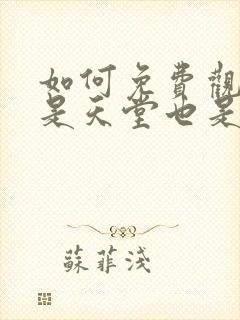 如何免費觀
是天堂也是
蘇菲淺